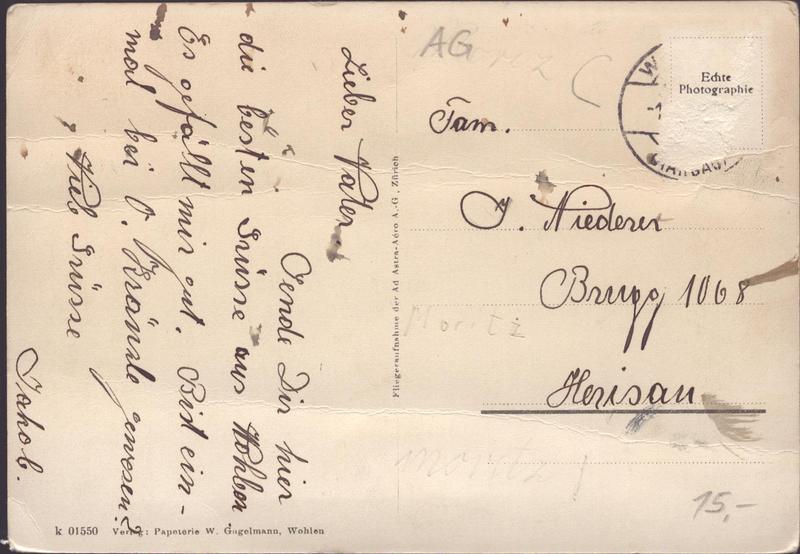 Lieber Vater.
Sende Dir hier
die besten Grüsse aus Wohlen
Es gefällt mir gut. Bist ein-
mal bei O. Kränzle gewesen?
Viele Grüsse
Jakob.
AG
Echte
Photographie
Fam.
J. Niederer
Brugg 1068
Herisau
Moritz
Moritz
15,-
Fliegeraufnahme der Ad Astra-Aéro A.-G., Zürich
k 01550 Verlag: Papeterie W. Gugelmann, Wohlen